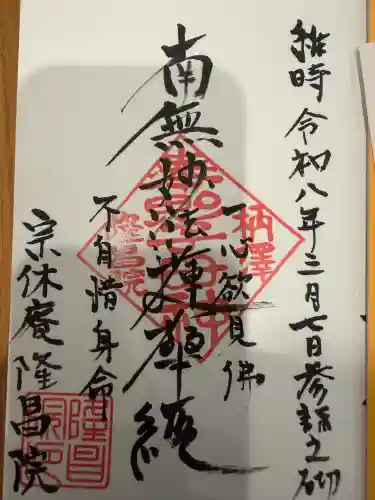 維時 令和八年三月七日参詣之砌
一心欲見佛
南無妙法蓮華経
不自惜身命
宗休庵 隆昌院
柄澤
隆昌院